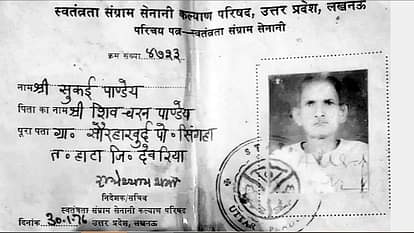 स्वतंत्रता संग्राम सेनानी कल्याण परिषद, उत्तर प्रदेश, लखनऊ
परिचय पत्र—स्वतंत्रता संग्राम सेनानी
क्रम संख्या ४७२३
नाम श्री सुकई पाण्डेय
पिता का नाम श्री शिव-चरन पाण्डेय
पूरा पता ग्रा० सौरहाखुर्द पो० सिंगहा
त० हाटा जि० देवरिया
निदेशक/सचिव
स्वतंत्रता संग्राम सेनानी कल्याण परिषद
दिनांक 30.1.76 उत्तर प्रदेश, लखनऊ
UTTAR